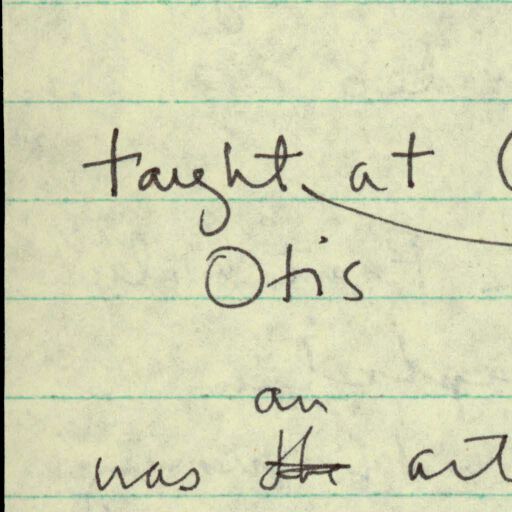 taught at
Otis
an
was the art